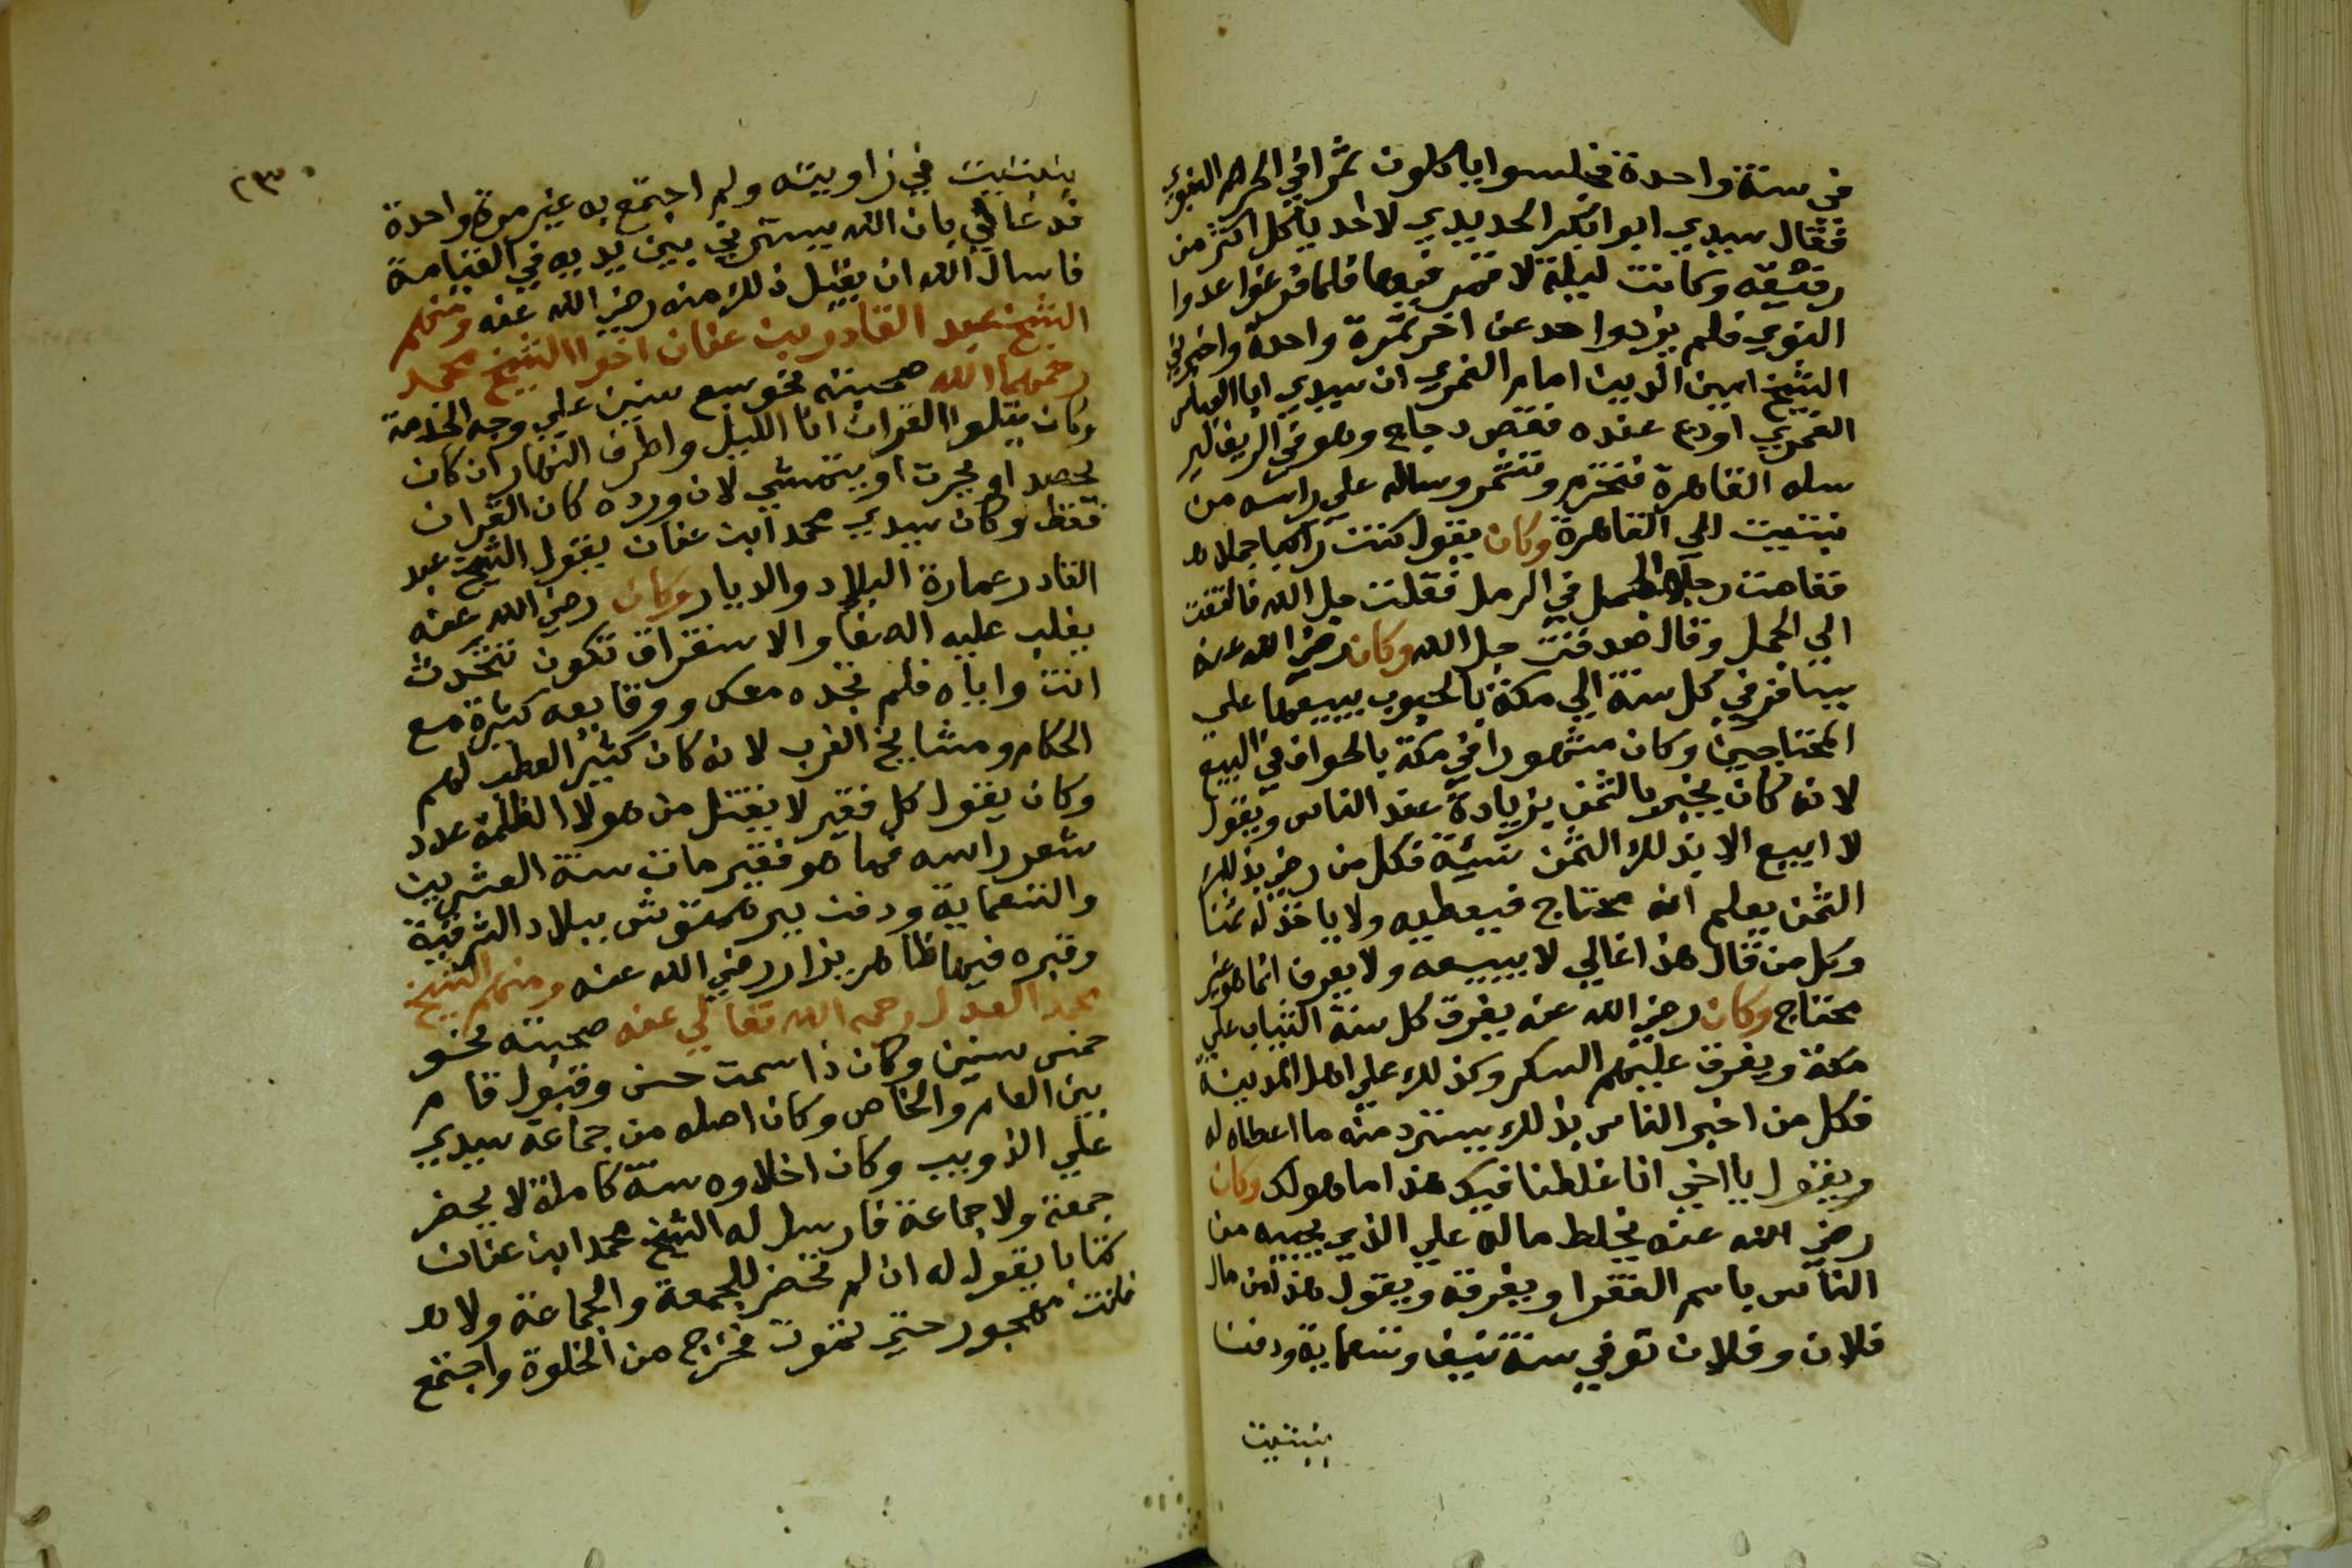 في سنة واحدة فجلسوا ياكلون تمرا في الحرم النبوي
فقال سيدي ابوا بكر الحديدي لا احد ياكل اكثر من
رفيقه وكانت ليلة لا قمر فيها فلما فرغوا عدوا
النوي فلم يزد واحد عن اخر تمرة واحدة واخبرني
الشيخ امين الدين امام الغمري ان سيدي ابا العباس
الغمري اودع عنده قفص دجاج وهو في الريف لير
سله القاهرة فتحزم وتشمر وساله علي راسه من
نبتيت الي القاهرة وكان يقول كنت راكبا جملا مره
فغاصت رجل الجمل في الرمل فقلت جل الله فالتفت
الي الجمل وقال صدقت جل الله وكان رضي الله عنه
يسافر في كل سنة الي مكة بالحبوب يبيعها علي
المحتاجين وكان مشهورا في مكة بالحواف في البيع
لانه كان يخبر بالثمن بزيادة عند الناس ويقول
لا ابيع الا بذلك الثمن نسيئة فكل من رضي بذلك
الثمن يعلم انه محتاج فيعطيه ولا ياخذ له ثمنا
وكل من قال هذا غالي لا يبيعه ولا يعرف انما هو غير
محتاج وكان رضي الله عنه يفرق كل سنة الثياب علي
مكة ويفرق عليهم السكر وكذلك علي اهل المدينة
فكل من اخبر الناس بذلك يسترد منه ما اعطاه له
ويقول يا اخي انا غلطنا فيك هذا ما هو لك وكان
رضي الله عنه يخلط ماله علي الذي يجبيه من
الناس باسم الفقرا ويفرقه ويقول هذا من مال
فلان وفلان توفي سنة نيف وتسعماية ودفن
بنبتيت
٢٣٠
بنبتيت في زاويته ولم اجتمع به غير مرة واحدة
قد عالي بان الله يسترني بين يديه في القيامة
فاسال الله ان يقبل ذلك منه رضي الله عنه ومنهم
الشيخ عبد القادر بن عنان اخوا الشيخ محمد
رحمهما الله صحبته نحو سبع سنين علي وجه الخدمة
وكان يتلوا القران انا الليل واطرف النهار ان كان
يحصد او يحرث او يتمشي لان ورده كان القران
فقط وكان سيدي محمد ابن عنان يقول الشيخ عبد
القادر عمارة البلاد والديار وكان رضي الله عنه
يغلب عليه الصفا والاستغراق تكون تتحدث
انت واياه فلم تجده معك ووقايعه كثيرة مع
الحكام ومشايخ العرب لانه كان كثير العطب لهم
وكان يقول كل فقير لا يقتل من هولا الظلمة عدد
شعر راسه فما هو فقير مات سنة العشرين
والتسعماية ودفن ببرهمتوش ببلاد الشرقية
وقبره فيها ظاهر يزار رضي الله عنه ومنهم الشيخ
محمد العدل رحمه الله تعالي عنه صحبته نحو
خمس سنين وكان ذا سمت حسن وقبول تام
بين العام والخاص وكان اصله من جماعة سيدي
علي الذويب وكان اخلاوه سنة كاملة لا يحضر
جمعة ولا جماعة فارسل له الشيخ محمد ابن عنان
كتابا يقول له ان لم تحضر للجمعة والجماعة والا
فانت مهجور حتي تموت فخرج من الخلوة واجتمع